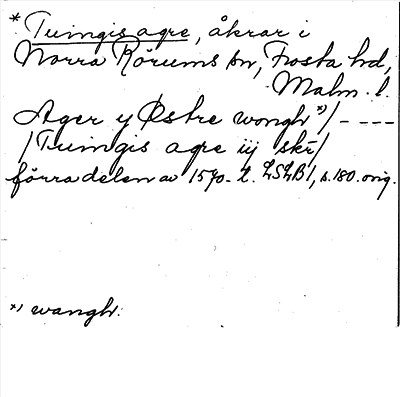 * Tuingis agre, åkrar i
Norra Rörums sn, Frosta hd,
Malm. l.
Ager y Østre wongh *)/ - ---
/Tuingis agre iij skr/
förra delen av 1570-t. LSLB 1, s. 180. orig.
*) wangh.